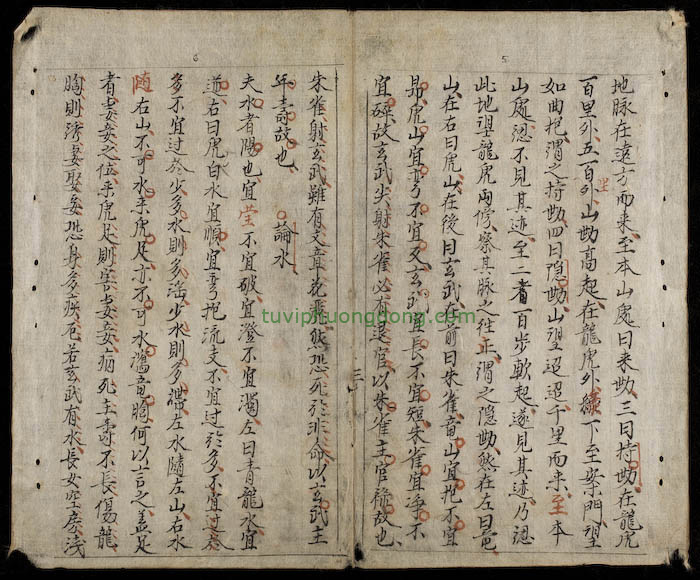 5
地脉在遠方而來至本山處曰來㔟三曰持㔟在龍虎
百里外五百外山㔟高起在龍虎外繳下至案門望
里
如曲抱謂之持㔟四曰隐㔟山望迢迢千里而來至本
山處忽不見其迹至二者百步軟起遂見其迹乃認
此地望龍虎兩傍察其脉之徃止謂之隐㔟然在左曰竜
山在右曰虎山在後曰玄武在前曰朱雀竜山宜抱不宜
昂虎山宜弯不宜又玄武宜長不宜短朱雀宜淨不
宜碍故玄武尖射朱雀必有退官以朱雀主官祿故也
三
6
朱雀射玄武雖有文章花飛然恐死於非命以玄武主
年壽故也 論水
夫水者陽也宜瑩不宜破宜澄不宜濁左曰青龍水宜
逆右曰虎白水宜順宜弯抱流支不宜過於多不宜过於
多不宜过於少多水則多滛少水則多滯左水隨左山右水
随右山不可水來虎足亦不可水瀉竜胸何以言之盖足
者妻妾之位來虎足則害妻妾病死主壽不長傷龍
胸則誘妻娶妾恐身多疾厄若玄武有水長女空房淺
tuviphuongdong.com